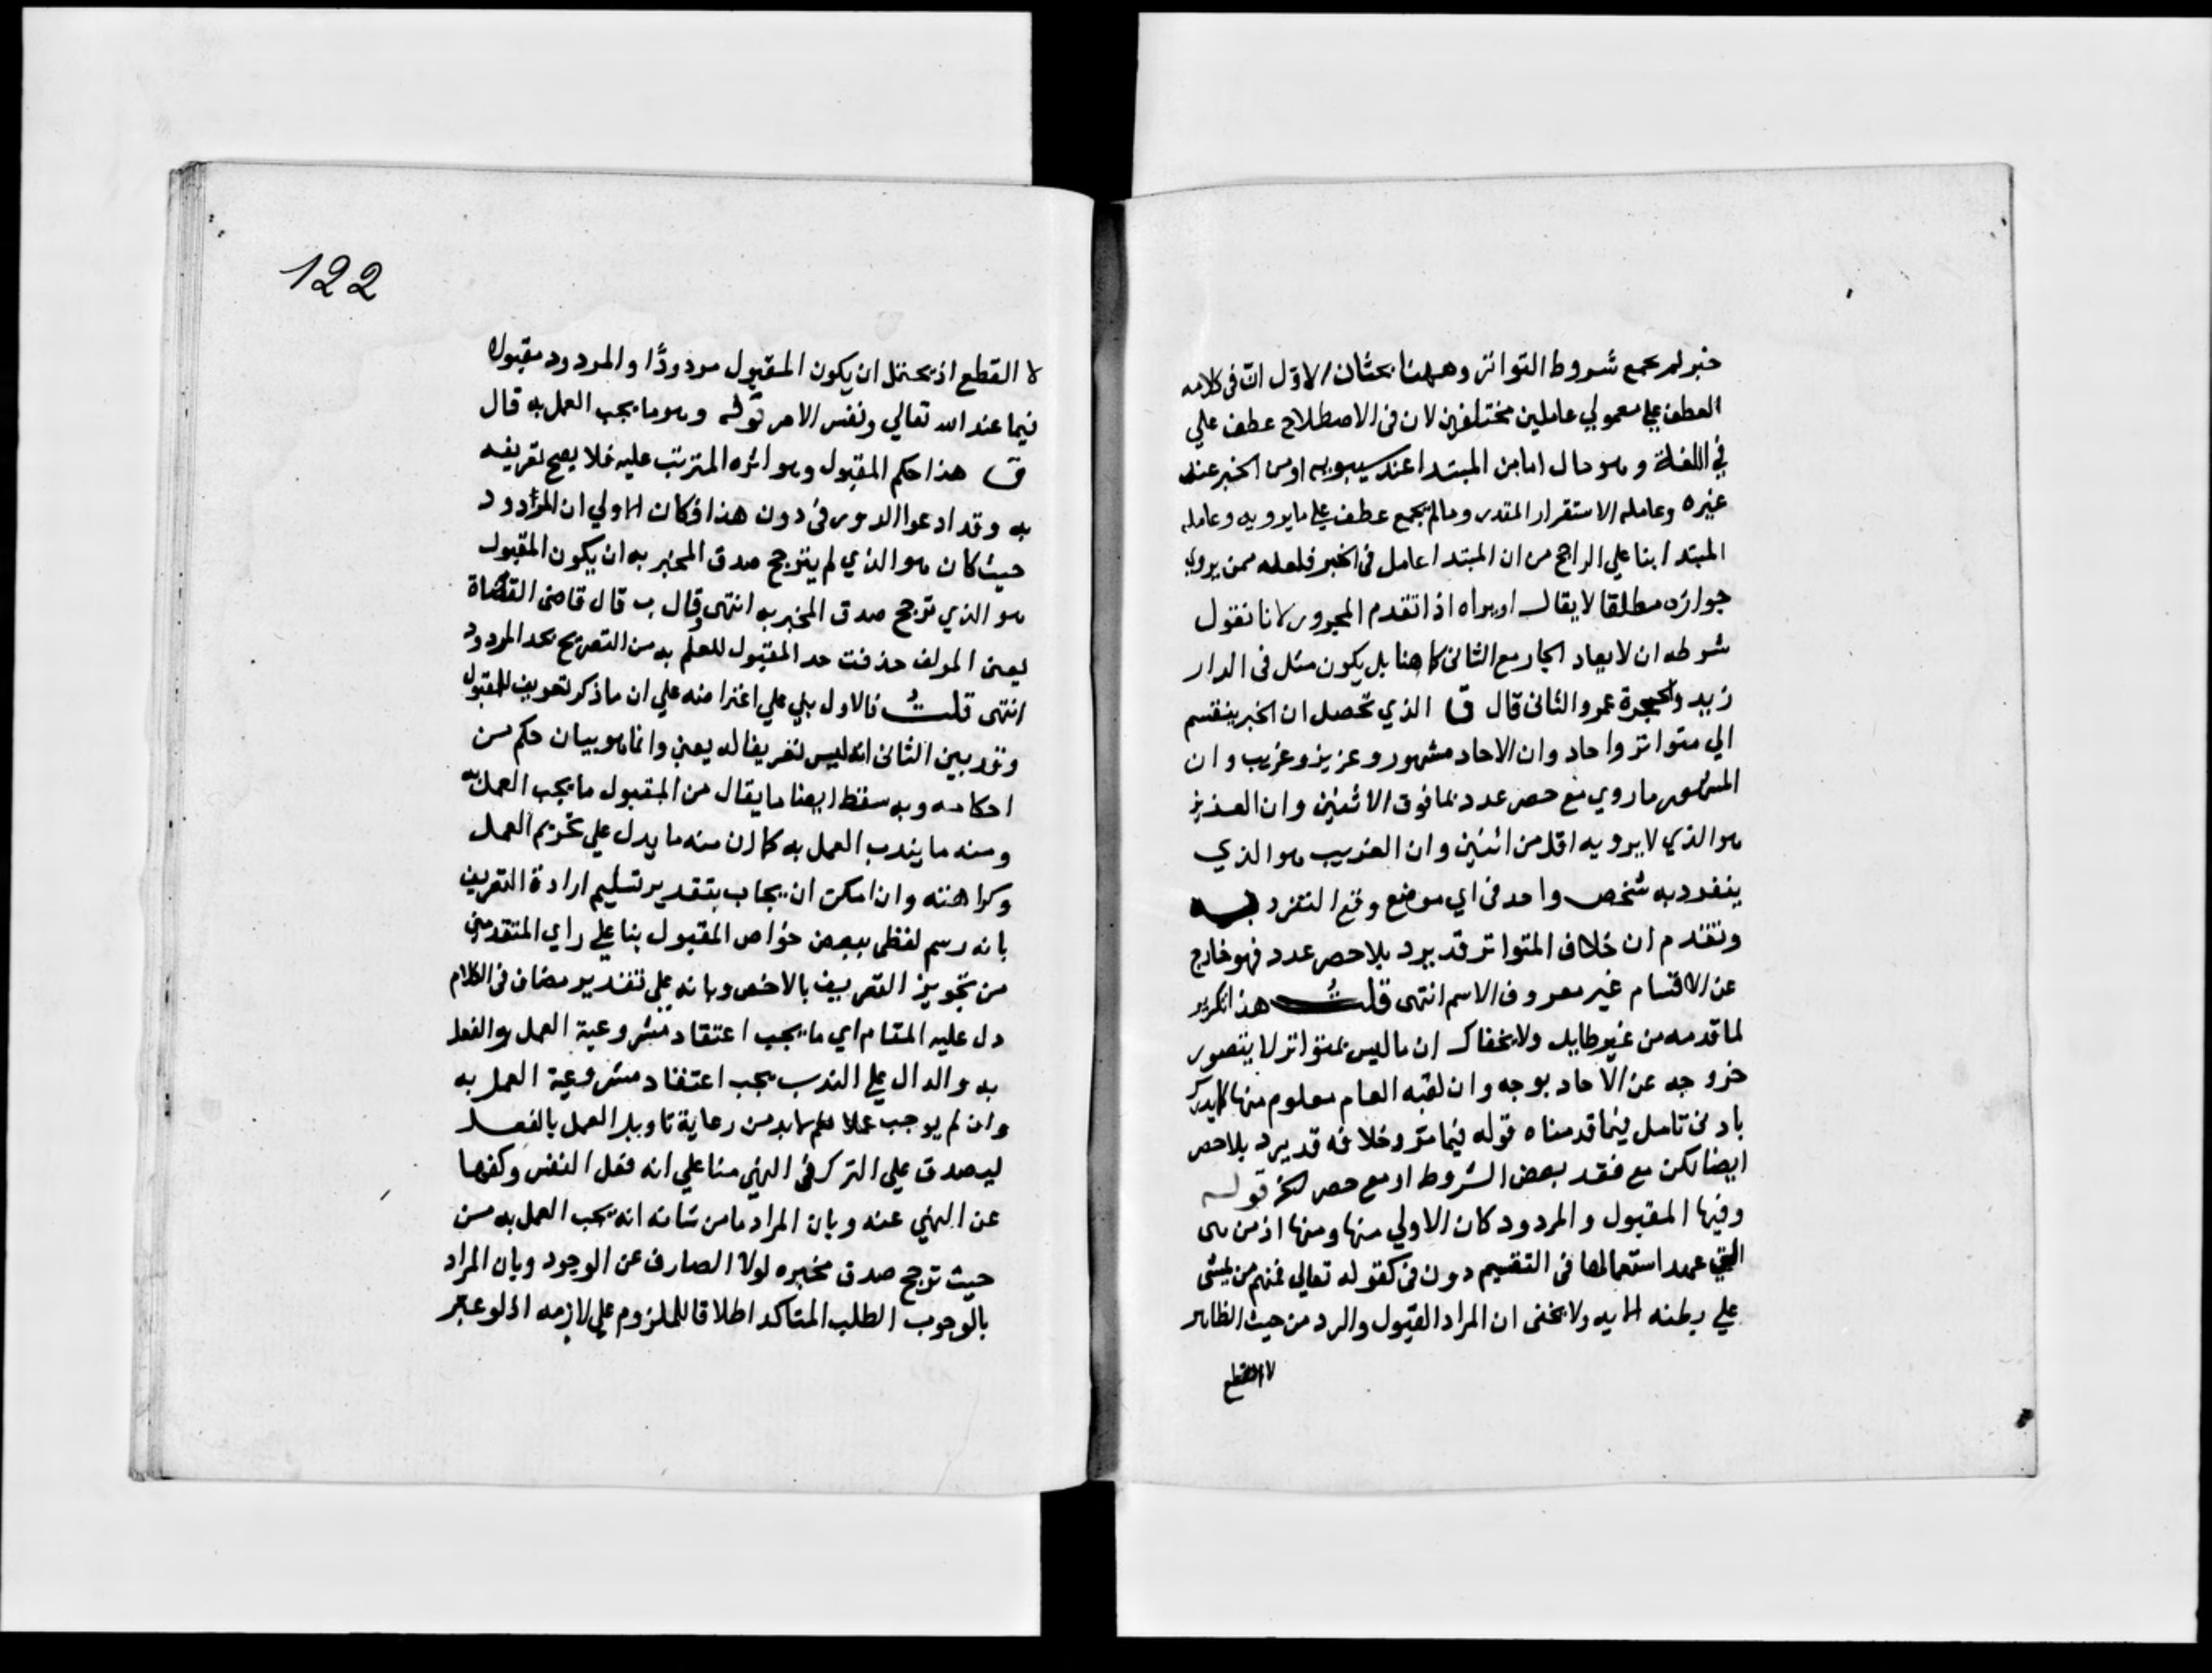 خبر لم يجمع شروط التواتر وههنا بحثان الاول ان في كلامه
العطف علي معمولي عاملين مختلفين لان في الاصطلاح عطف علي
في اللغة وهو حال اما من المبتدا عند سيبويه او من الخبر عند
غيره وعامله الاستقرار المقدر وما لم يجمع عطف علي ما يرويه وعامله
المبتدا بنا علي الراجح من ان المبتدا عامل في الخبر فلعله ممن يروي
جوازه مطلقا لا يقال اويراه اذا تقدم المجرور لانا نقول
شرطه ان لا يعاد الجار مع الثاني كما هنا بل يكون مثل في الدار
زيد والحجرة عمرو الثاني قال ق الذي تحصل ان الخبر ينقسم
الي متواتر واحاد وان الاحاد مشهور وعزيز وغريب وان
المشهور ما روي مع حصر عدد بما فوق الاثنين وان العزيز
هو الذي لا يرويه اقل من اثنين وان الغريب هو الذي
ينفرد به شخص واحد في اي موضع وقع التفرد به
وتقدم ان خلاف المتواتر قد يرد بلا حصر عدد فهو خارج
عن الاقسام غير معروف الاسم انتهى قلت هذا تكرير
لما قدمه من غير طايل ولا يخفاك ان ما ليس بمتواتر لا يتصور
خروجه عن الاحاد بوجه وان لقبه العام معلوم منها كما يدرك
بادني تامل فيما قدمناه قوله فيما مر وخلافه قد يرد بلا حصر
ايضا لكن مع فقد بعض الشروط او مع حصر الخ قوله
وفيها المقبول والمردود كان الاولي منها ومنها اذ من هي
التي عهد استعمالها في التقسيم دون في كقوله تعالي فمنهم من يمشي
علي بطنه الايه ولا يخفى ان المراد القبول والرد من حيث الظاهر
لا القطع
122
لا القطع اذ يحتمل ان يكون المقبول مردودًا والمردود مقبولا
فيما عند الله تعالي ونفس الامر قوله وهو ما يجب العمل به قال
ق هذا حكم المقبول وهو اثره المترتب عليه فلا يصح تعريفه
به وقد ادعوا الدور في دون هذا فكان الاولي ان المردود
حيث كان هو الذي لم يترجح صدق المخبر به ان يكون المقبول
هو الذي ترجح صدق المخبر به انتهى وقال ب قال قاضي القضاة
يعني المولف حذفت حد المقبول للعلم به من التصريح بحد المردود
انتهى قلت فالاول بني علي اعتراضه علي ان ما ذكر تعريف للمقبول
وقد بين الثاني انه ليس تعريفا له يعني وانما هو بيان حكم من
احكامه وبه سقط ايضا ما يقال من المقبول ما يجب العمل به
ومنه ما يندب العمل به كما ان منه ما يدل علي تحريم العمل
وكراهته وان امكن ان يجاب بتقدير تسليم ارادة التعريف
بانه رسم لفظي ببعض خواص المقبول بنا علي راي المتقدمين
من تجويز التعريف بالاخص وبانه علي تقدير مضاف في الكلام
دل عليه المقام اي ما يجب اعتقاد مشروعية العمل والفعل
به والدال علي الندب يجب اعتقاد مشروعية العمل به
وان لم يوجب عملا ثم لا بد من رعاية تاويل العمل بالفعل
ليصدق علي الترك في النهي منا علي انه فعل النفس وكفها
عن النهي عنه وبان المراد ما من شانه انه يجب العمل به من
حيث ترجح صدق مخبره لولا الصارف عن الوجود وبان المراد
بالوجوب الطلب المتاكد اطلاقا للملزوم علي لازمه اذ لو عبر